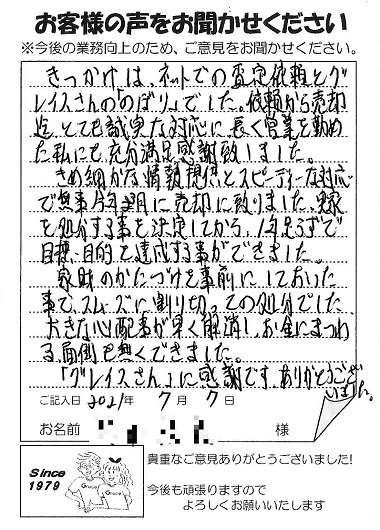 お客様の声をお聞かせください
※今後の業務向上のため、ご意見をお聞かせください。
きっかけは、ネットでの査定依頼とグ
レイスさんの「のぼり」でした。依頼から売却
迄、とても誠実な対応に、長く営業を勤め
た私にも充分満足感謝致しました。
きめ細かな情報提供とスピーディーな対応
で無事今年2月に売却に致りました。実家
を処分する事を決定してから、1年足らずで
目標、目的を達成する事ができました。
家財のかたづけを事前にしておいた
事で、スムーズに割り切っての処分でした。
大きな心配事が早く解消し、お金にまつわ
る面倒も無くできました。
「グレイスさん」に感謝です。ありがとうござ
いました。
ご記入日 2021年 7月 7日
お名前 様
Since
1979
Grace
Grace
貴重なご意見ありがとうございました!
今後も頑張りますので
よろしくお願いいたします